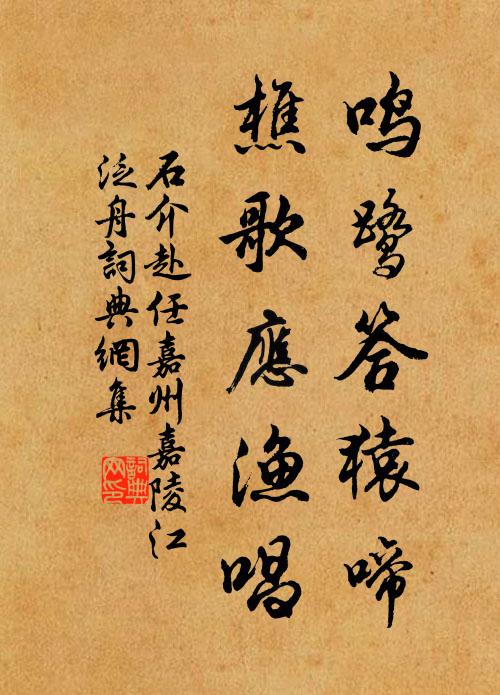 鸣鹭答猿啼
樵歌應漁唱
石介赴任嘉州嘉陵江
泛舟詞典網集
詞典网印